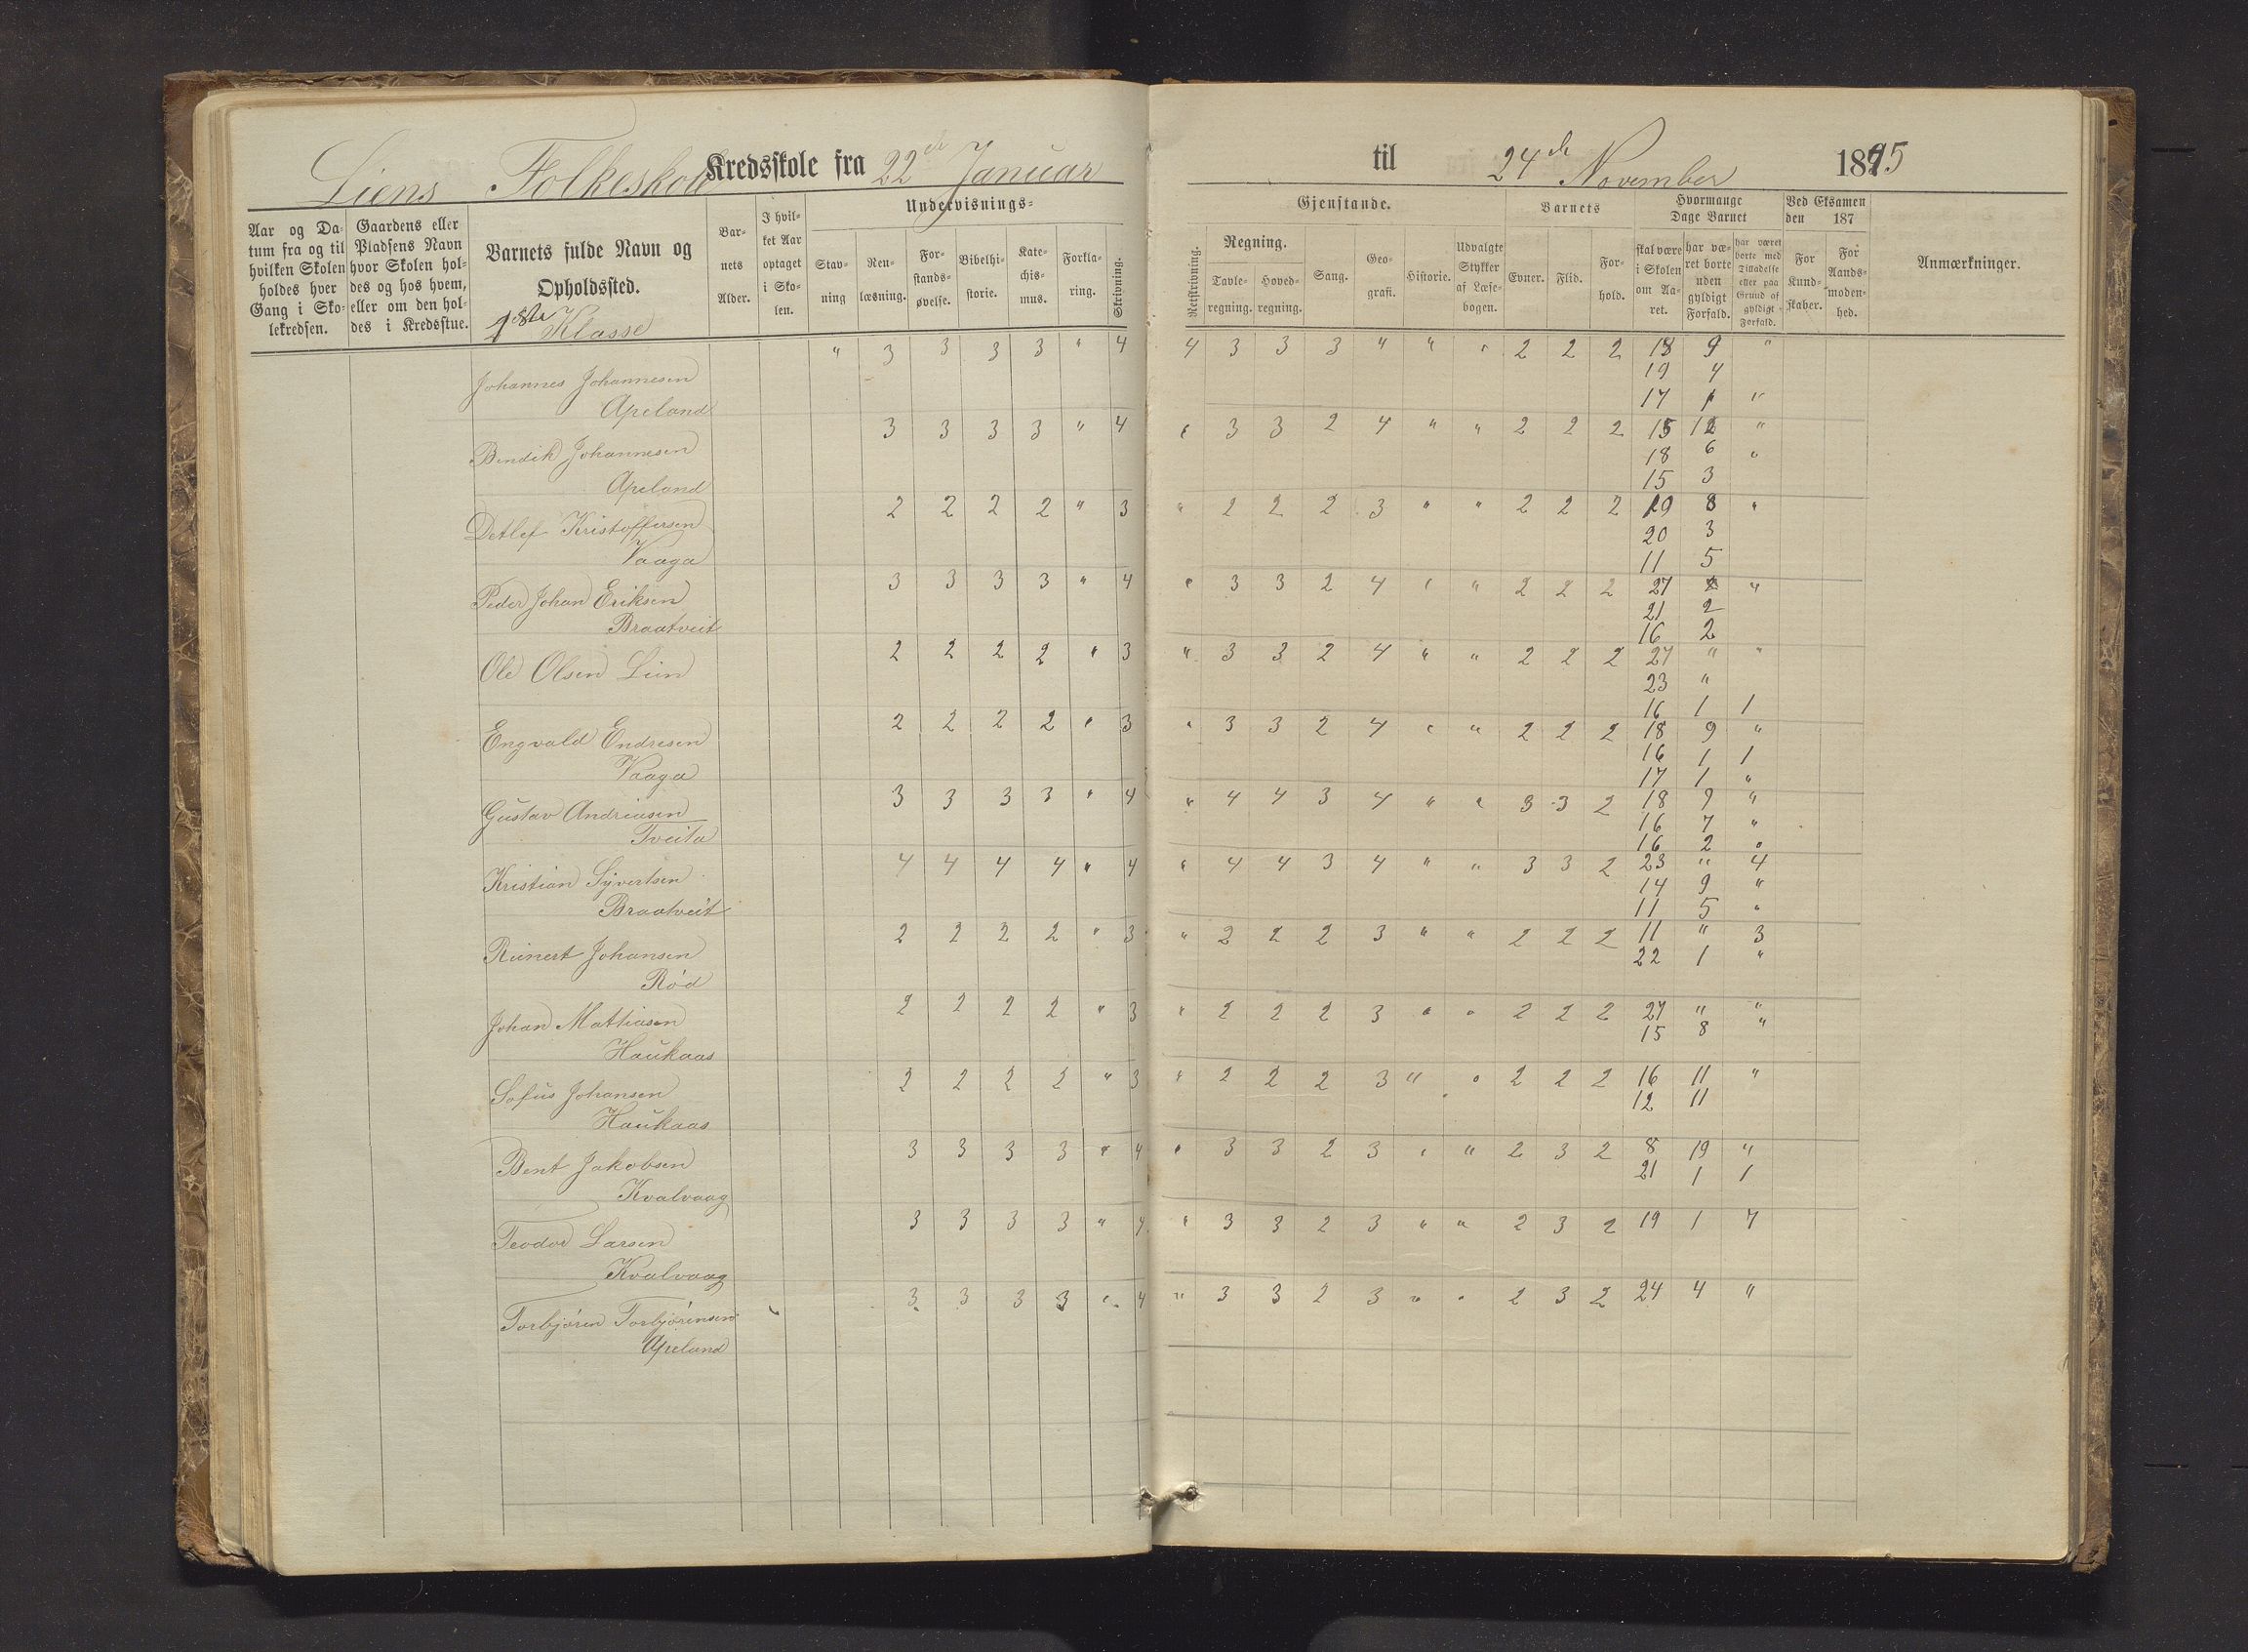 Liens Folkeskole Kredsskole fra 22de Januar til 24de November 1895
Aar og Da-
tum fra og til
hvilken Skolen
holdes hver
Gang i Sko-
lekredsen.
Gaardens eller
Pladsens Navn
hvor Skolen hol-
des og hos hvem,
eller om den hol-
des i Kredsstue.
Barnets fulde Navn og
Opholdssted.
1ste Klasse
Bar-
nets
Alder.
I hvil-
ket Aar
optaget
i Sko-
len.
Undervisnings-
Stav-
ning
Ren-
læsning.
For-
stands-
øvelse.
Bibelhi-
storie.
Kate-
chis-
mus.
Forkla-
ring.
Skrivning.
Gjenstande.
Retskrivning.
Regning.
Tavle-
regning.
Hoved-
regning.
Sang.
Geo-
grafi.
Historie.
Udvalgte
Stykker
af Læse-
bogen.
Barnets
Evner.
Flid.
For-
hold.
Hvormange
Dage Barnet
skal være
i Skolen
om Aa-
ret.
har væ-
ret borte
uden
gyldigt
Forfald.
har været
borte med
Tilladelse
eller paa
Grund af
gyldigt
Forfald.
Ved Eksamen
den 187
For
Kund-
skaber.
For
Aands-
moden-
hed.
Anmærkninger.
" 3 3 3 3 " 4 4 3 3 3 " " " 2 2 2 18 9 "
Johannes Johannesen 19 4
Apeland 17 1 "
3 3 3 3 " 4 " 3 3 2 4 " " 2 2 2 15 12 "
Bendik Johannesen 18 6 "
Apeland 15 3
2 2 2 2 " 3 " 2 2 2 3 " " 2 2 2 19 8 "
Detlef Kristoffersen 20 3
Vaaga 11 5
3 3 3 3 " 4 " 3 3 2 4 " " 2 2 2 27 "
Peder Johan Eriksen 21 2
Braatveit 16 2
2 2 2 2 " 3 " 3 3 2 4 " " 2 2 2 27 " "
Ole Olsen Lien 23 "
16 1 1
2 2 2 2 " 3 " 3 3 2 4 " " 2 2 2 18 9 "
Engvald Endresen 16 1 1
Vaaga 17 1 "
3 3 3 3 " 4 " 4 4 3 4 " " 3 3 2 18 9 "
Gustav Andreasen 16 7 "
Tveita 16 2 "
4 4 4 4 " 4 " 4 4 3 4 " " 3 3 2 23 " 4
Kristian Syvertsen 14 9 "
Braatveit 11 5 "
2 2 2 2 " 3 " 2 2 2 3 " " 2 2 2 11 " 3
Reinert Johansen 22 1 "
Rød
2 2 2 2 " 3 " 2 2 2 3 " " 2 2 2 27 " "
Johan Mathiasen 15 8 "
Haukaas
2 2 2 2 " 3 " 2 2 2 3 " " 2 2 2 16 11 "
Sofus Johansen 12 11
Haukaas
3 3 3 3 " 4 " 3 3 2 3 " " 2 3 2 8 19 "
Bent Jakobsen 21 1 1
Kvalvaag
3 3 3 3 " 4 " 3 3 2 3 " " 2 3 2 19 1 7
Teodor Larsen
Kvalvaag
3 3 3 3 " 4 " 3 3 2 3 " " 2 3 2 24 4 "
Torbjøren Torbjørensen
Apeland